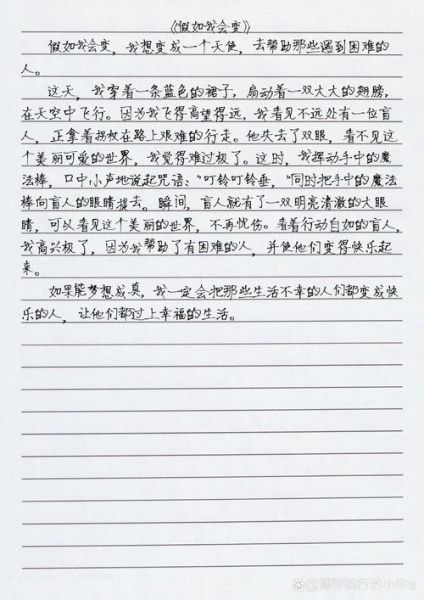 《假如我会变》
假如我会变，我想变成一个天使，去帮助那些遇到困难的
人。
这天，我穿着一条蓝色的裙子，扇动着一双大大的翅膀，
在天空中飞行。因为我飞得高望得远，我看见不远处有一位盲
人，正拿着拐杖在路上艰难的行走。他失去了双眼，看不见这
个美丽可爱的世界，我觉得难过极了。这时，我挥动手中的魔
法棒，口中小声地说起咒语：“叮铃叮铃垂，”同时把手中的魔法
棒向盲人的眼睛挥去。瞬间，盲人就有了一双明亮清澈的大眼
睛，可以看见这个美丽的世界，不再忧伤。看着行动自如的盲人，
我高兴极了，因为我帮助了有困难的人，并使他们变得快乐起
来。
如果能梦想成真，我一定会把那些生活不幸的人们都变成快
乐的人，让他们都过上幸福的生活。